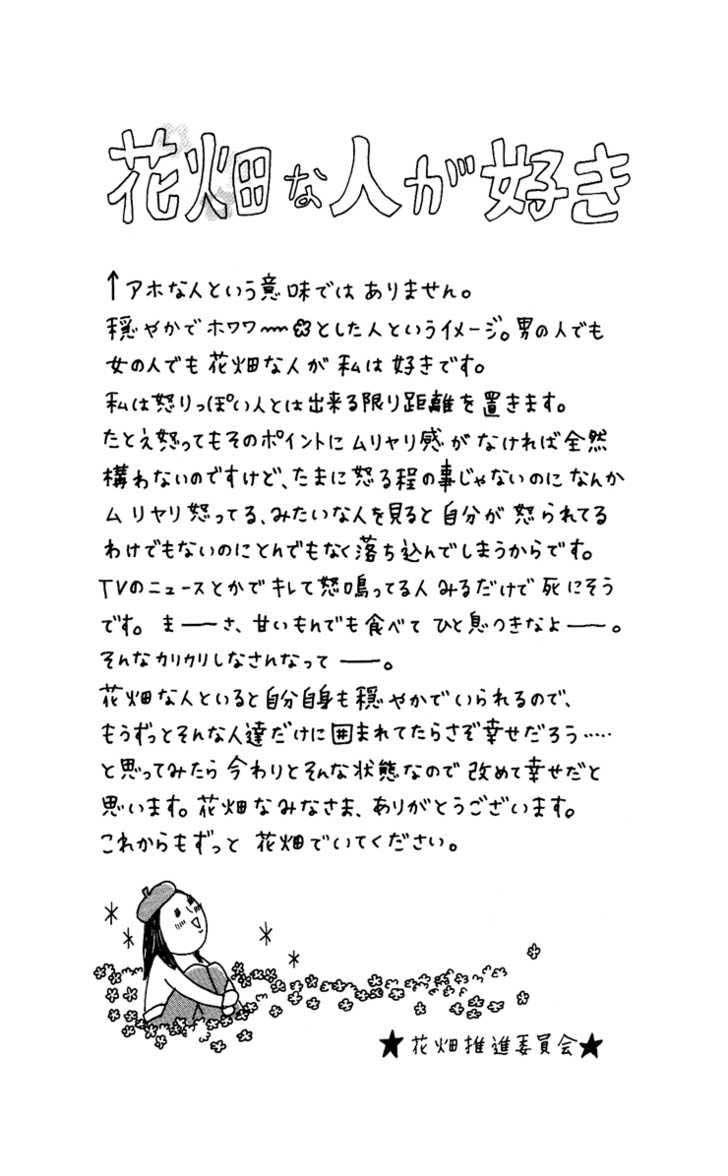 花畑な人が好き
↑アホな人という意味ではありません。
穏やかでホワワ〜〜とした人というイメージ。男の人でも
女の人でも花畑な人が私は好きです。
私は怒りっぽい人とは出来る限り距離を置きます。
たとえ怒ってもそのポイントにムリヤリ感がなければ全然
構わないのですけど、たまに怒る程の事じゃないのになんか
ムリヤリ怒ってる、みたいな人を見ると自分が怒られてる
わけでもないのにとんでもなく落ち込んでしまうからです。
TVのニュースとかでキレて怒鳴ってる人みるだけで死にそう
です。まーーさ、甘いもんでも食べてひと息つきなよーー。
そんなカリカリしなさんなってーー。
花畑な人といると自分自身も穏やかでいられるので、
もうずっとそんな人達だけに囲まれてたらさぞ幸せだろう……
と思ってみたら今わりとそんな状態なので改めて幸せだと
思います。花畑なみなさま、ありがとうございます。
これからもずっと花畑でいてください。
★花畑推進委員会★